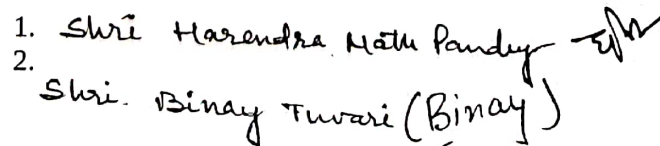 1. Shri Harendra Nath Pandey
2.
Shri. Binay Tiwari (Binay)